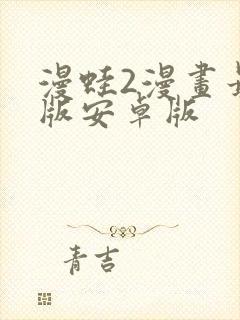 漫蛙2漫畫
版安卓版
青吉